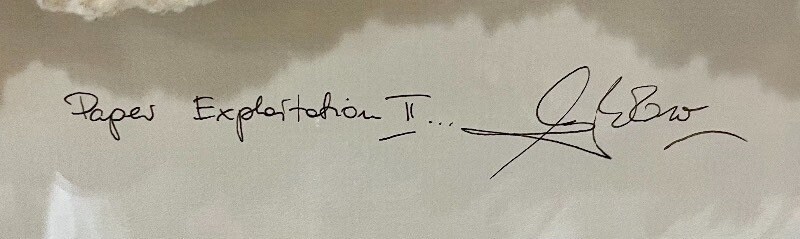 Paper Exploitation II...